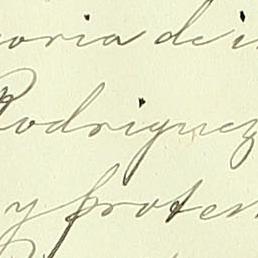 oria de i
Rodriguez
y proten